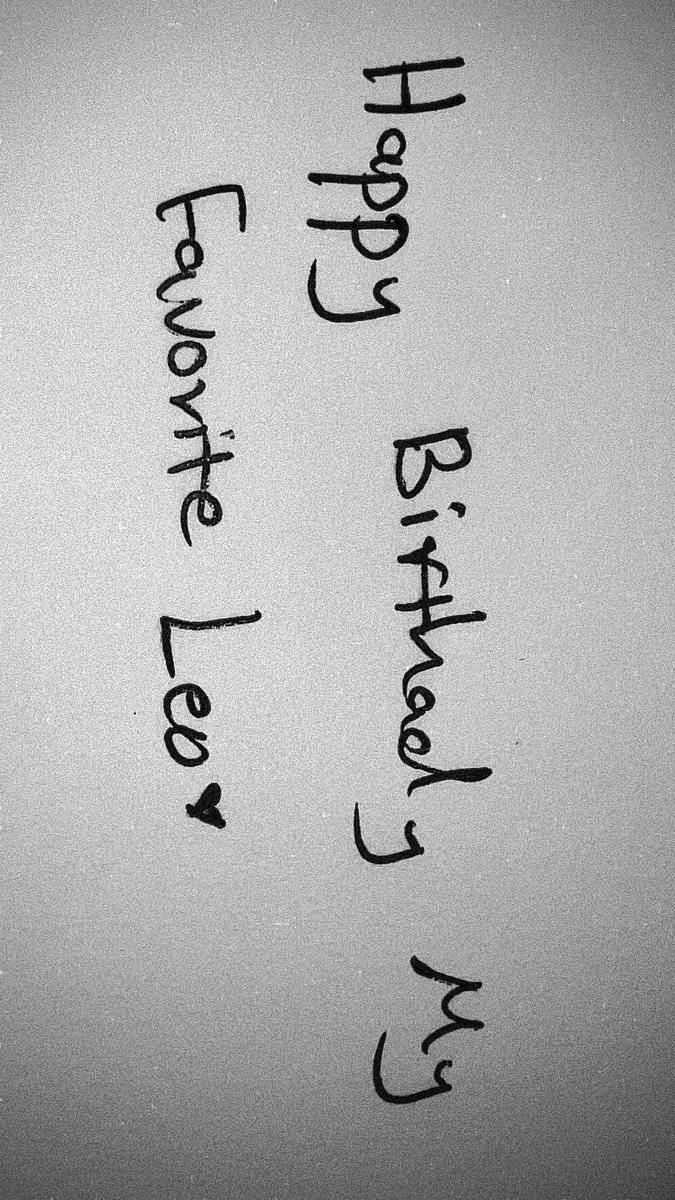 Happy Birthady My
Favorite Leo♥